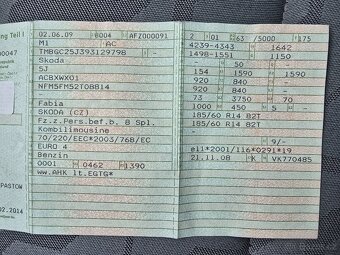 ng Teil I
00047
PASTOW
02.2014
02.06.09 8004 AFZ000091
M1 AC
TMBGC25J393129798
Skoda
5J
ACBXWX01
NFM5FM52T0BB14
Fabia
SKODA (CZ)
Fz.z.Pers.bef.b. 8 Spl.
Kombilimousine
70/220/EEC*2003/76B/EC
EURO 4
Benzin
0001 0462 1390
ww.AHK lt.EGTG*
2 01 63 /5000 175
4239-4343 1642
1498-1551 1150
- 50 -
154 1590 1590 -
920 840 -
920 840 -
73 3750 70
1000 450 5 -
185/60 R14 82T
185/60 R14 82T
- 9/-
e11*2001/116*0291*19
21.11.08 VK770485